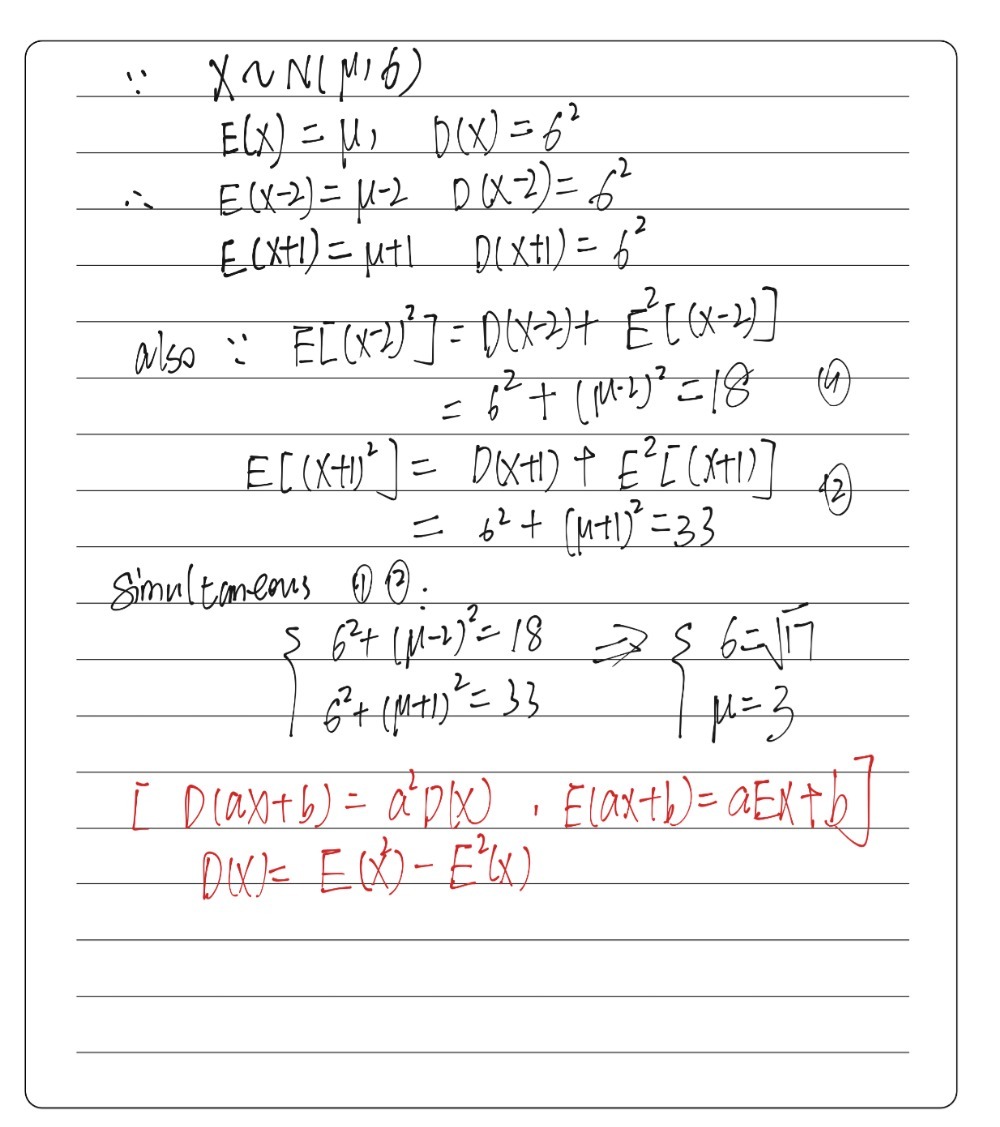 ∵ X ~ N(μ, σ)
E(X) = μ, D(X) = σ²
∴ E(X-2) = μ-2 D(X-2) = σ²
E(X+1) = μ+1 D(X+1) = σ²
also ∵ E[(X-2)²] = D(X-2) + E²[(X-2)]
= σ² + (μ-2)² = 18 ①
E[(X+1)²] = D(X+1) + E²[(X+1)] ②
= σ² + (μ+1)² = 33
Simultaneous ① ②.
{ σ² + (μ-2)² = 18 ⇒ { σ = √17
σ² + (μ+1)² = 33 μ = 3
[ D(ax+b) = a²D(X) , E(ax+b) = aEX+b ]
D(X) = E(X²) - E²(X)